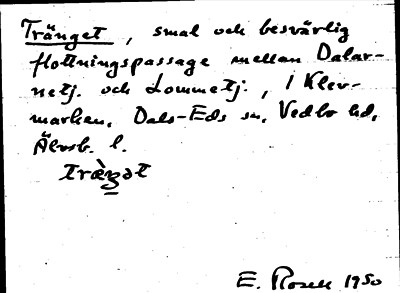 Tränget, smal och besvärlig
flottningspassage mellan Dalar-
netj. och Lommetj., i Klev-
marken. Dals-Eds sn, Vedbo hd,
Älvsb. l.
E. Rosell 1950